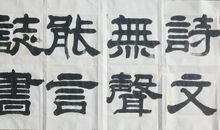 詩文
無聲
能言
誌書